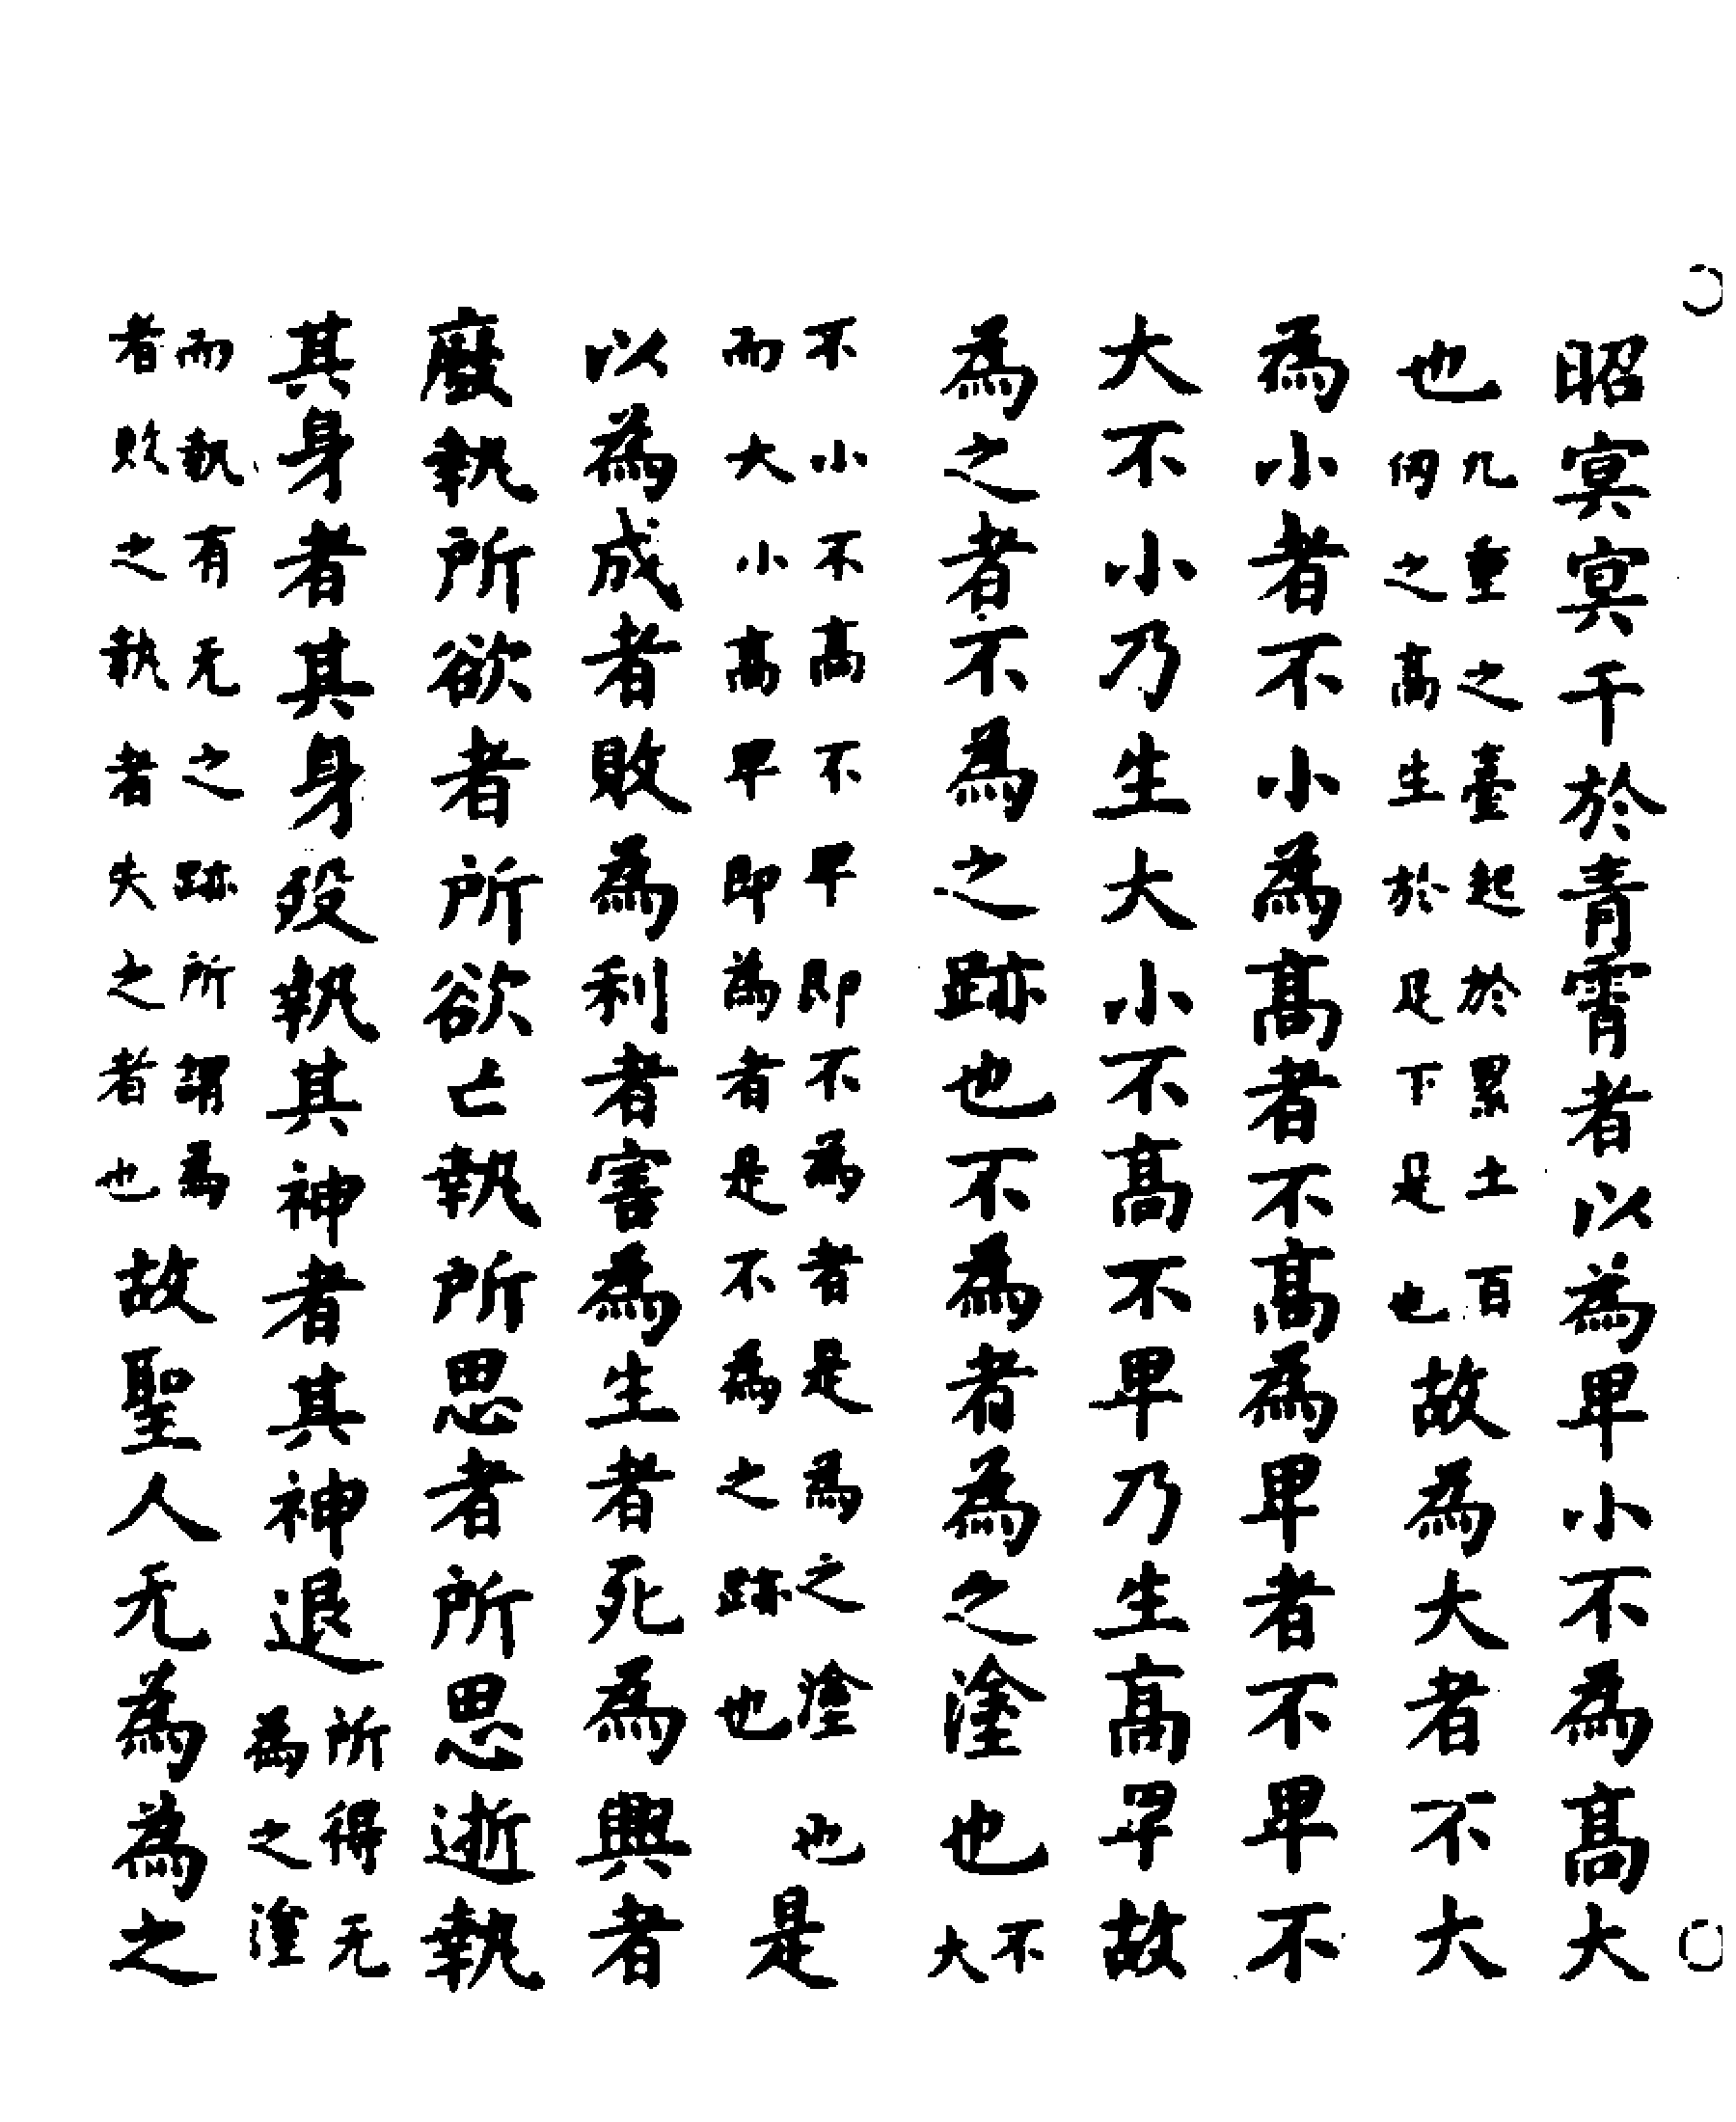 昭㝠㝠干於青霄者以為卑小不為高大
也九重之臺起於累土百仞之高生於足下是也故為大者不大
為小者不小為高者不高為卑者不卑不
大不小乃生大小不高不卑乃生高卑故
為之者不為之跡也不為者為之塗也不大
不小不高不卑即不為者是為之塗也而大小高卑即為者是不為之跡也是
以為成者敗為利者害為生者死為興者
廢執所欲者所欲亡執所思者所思逝執
其身者其身歿執其神者其神退所得无為之塗
而執有无之跡所謂為者敗之執者失之者也故聖人无為為之